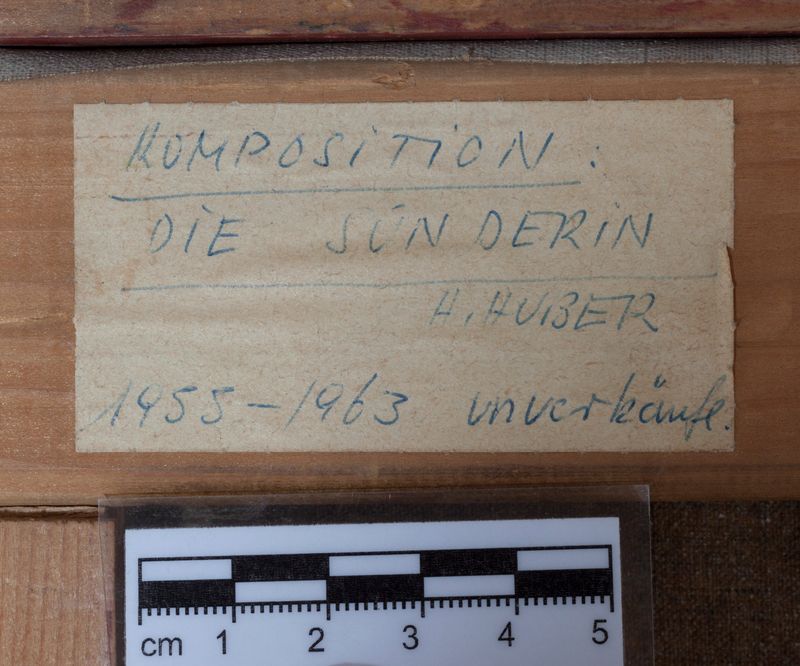 KOMPOSiTiON:
DiE SÜNDERiN
H. HUBER
1955-1963 unverkäufl.
cm 1 2 3 4 5